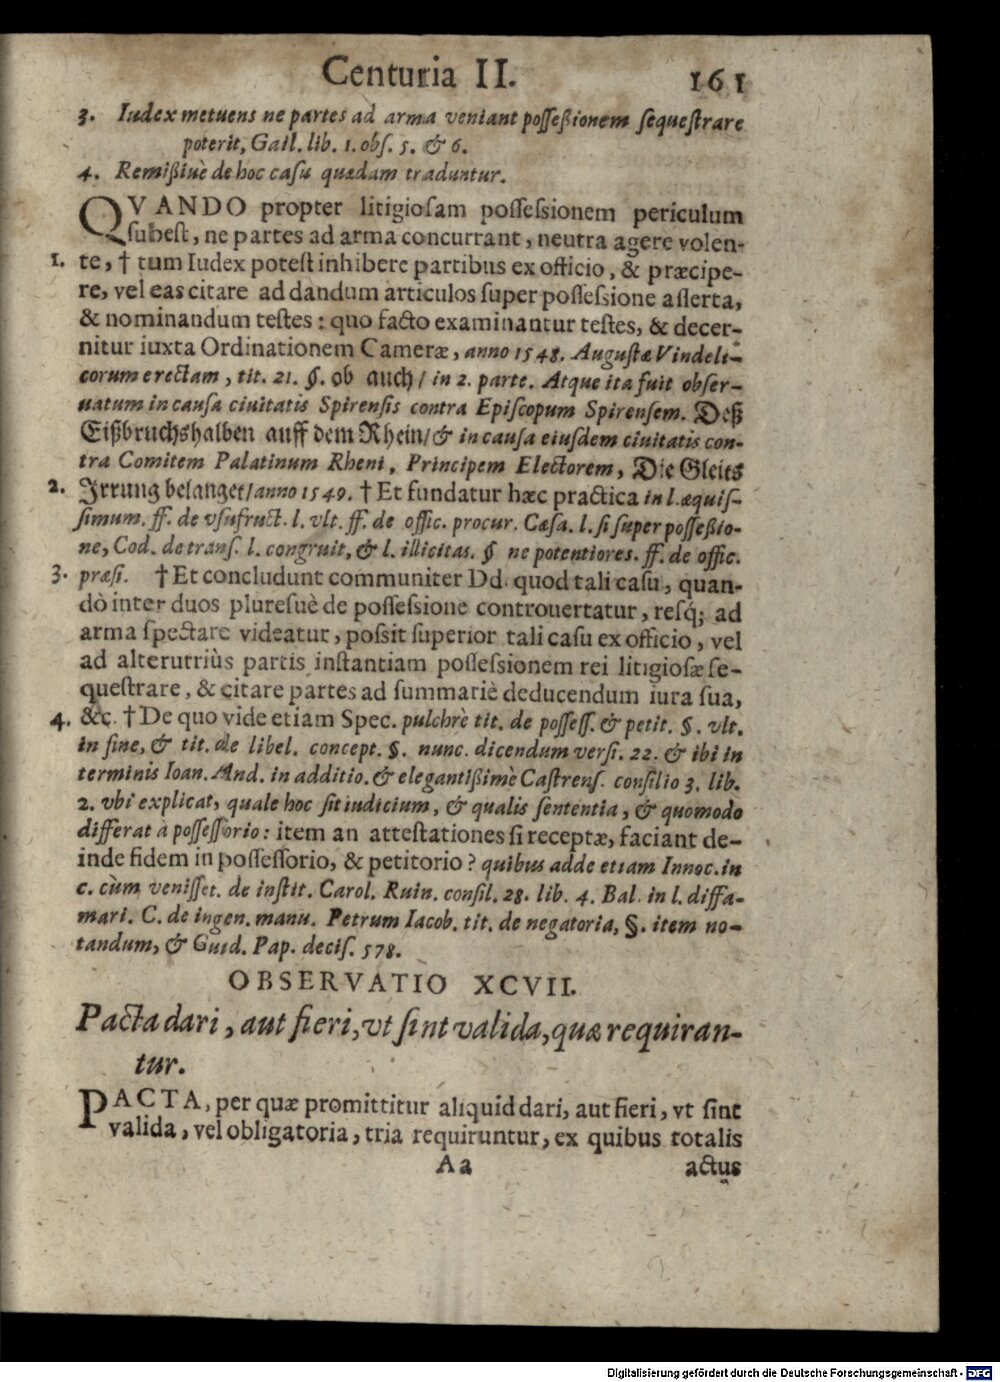 Centuria II. 161
3. Iudex metuens ne partes ad arma veniant posseßionem sequestrare
poterit, Gail. lib. 1. obs. 5. & 6.
4. Remißiuè de hoc casu quædam traduntur.
QVANDO propter litigiosam possessionem periculum
subest, ne partes ad arma concurrant, neutra agere volen-
1. te, † tum Iudex potest inhibere partibus ex officio, & præcipe-
re, vel eas citare ad dandum articulos super possessione asserta,
& nominandum testes: quo facto examinantur testes, & decer-
nitur iuxta Ordinationem Cameræ, anno 1548. Augustæ Vindeli-
corum erectam, tit. 21. §. ob auch/ in 2. parte. Atque ita fuit obser-
uatum in causa ciuitatis Spirensis contra Episcopum Spirensem. Deß
Eißbruchshalben auff dem Rhein/ & in causa eiusdem ciuitatis con-
tra Comitem Palatinum Rheni, Principem Electorem, Die Gleits
2. Irrung belanget/ anno 1549. † Et fundatur hæc practica in l. æquis-
simum. ff. de vsufruct. l. vlt. ff. de offic. procur. Cæsa. l. si super posseßio-
ne, Cod. de trans. l. congruit, & l. illicitas. § ne potentiores. ff. de offic.
3. præsi. † Et concludunt communiter Dd. quod tali casu, quan-
dò inter duos pluresuè de possessione controuertatur, resq; ad
arma spectare videatur, possit superior tali casu ex officio, vel
ad alterutriùs partis instantiam possessionem rei litigiosæ se-
questrare, & citare partes ad summariè deducendum iura sua,
4. &c. † De quo vide etiam Spec. pulchrè tit. de possess. & petit. §. vlt.
in fine, & tit. de libel. concept. §. nunc. dicendum versi. 22. & ibi in
terminis Ioan. And. in additio. & elegantißimè Castrens. consilio 3. lib.
2. vbi explicat, quale hoc sit iudicium, & qualis sententia, & quomodo
differat à possessorio: item an attestationes si receptæ, faciant de-
inde fidem in possessorio, & petitorio? quibus adde etiam Innoc. in
c. cùm venisset. de instit. Carol. Ruin. consil. 28. lib. 4. Bal. in l. diffa-
mari. C. de ingen. manu. Petrum Iacob. tit. de negatoria, §. item no-
tandum, & Guid. Pap. decis. 578.
OBSERVATIO XCVII.
Pacta dari, aut fieri, vt sint valida, quæ requiran-
tur.
PACTA, per quæ promittitur aliquid dari, aut fieri, vt sint
valida, vel obligatoria, tria requiruntur, ex quibus totalis
Aa actus
Digitalisierung gefördert durch die Deutsche Forschungsgemeinschaft - DFG